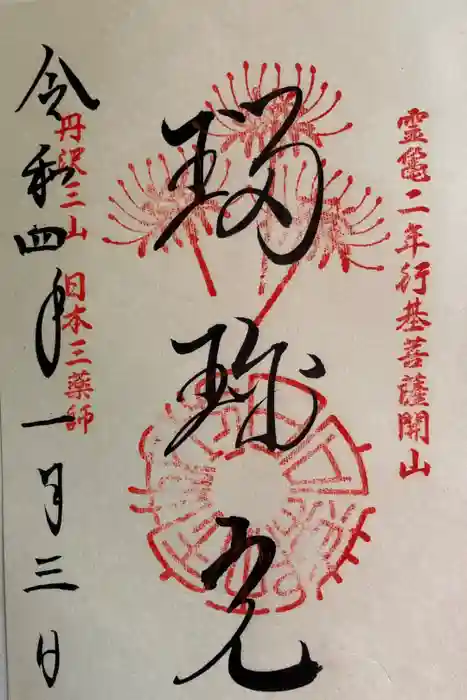 霊亀二年行基菩薩開山
瑠璃光
丹沢三山 日本三薬師
令和四年一月三日